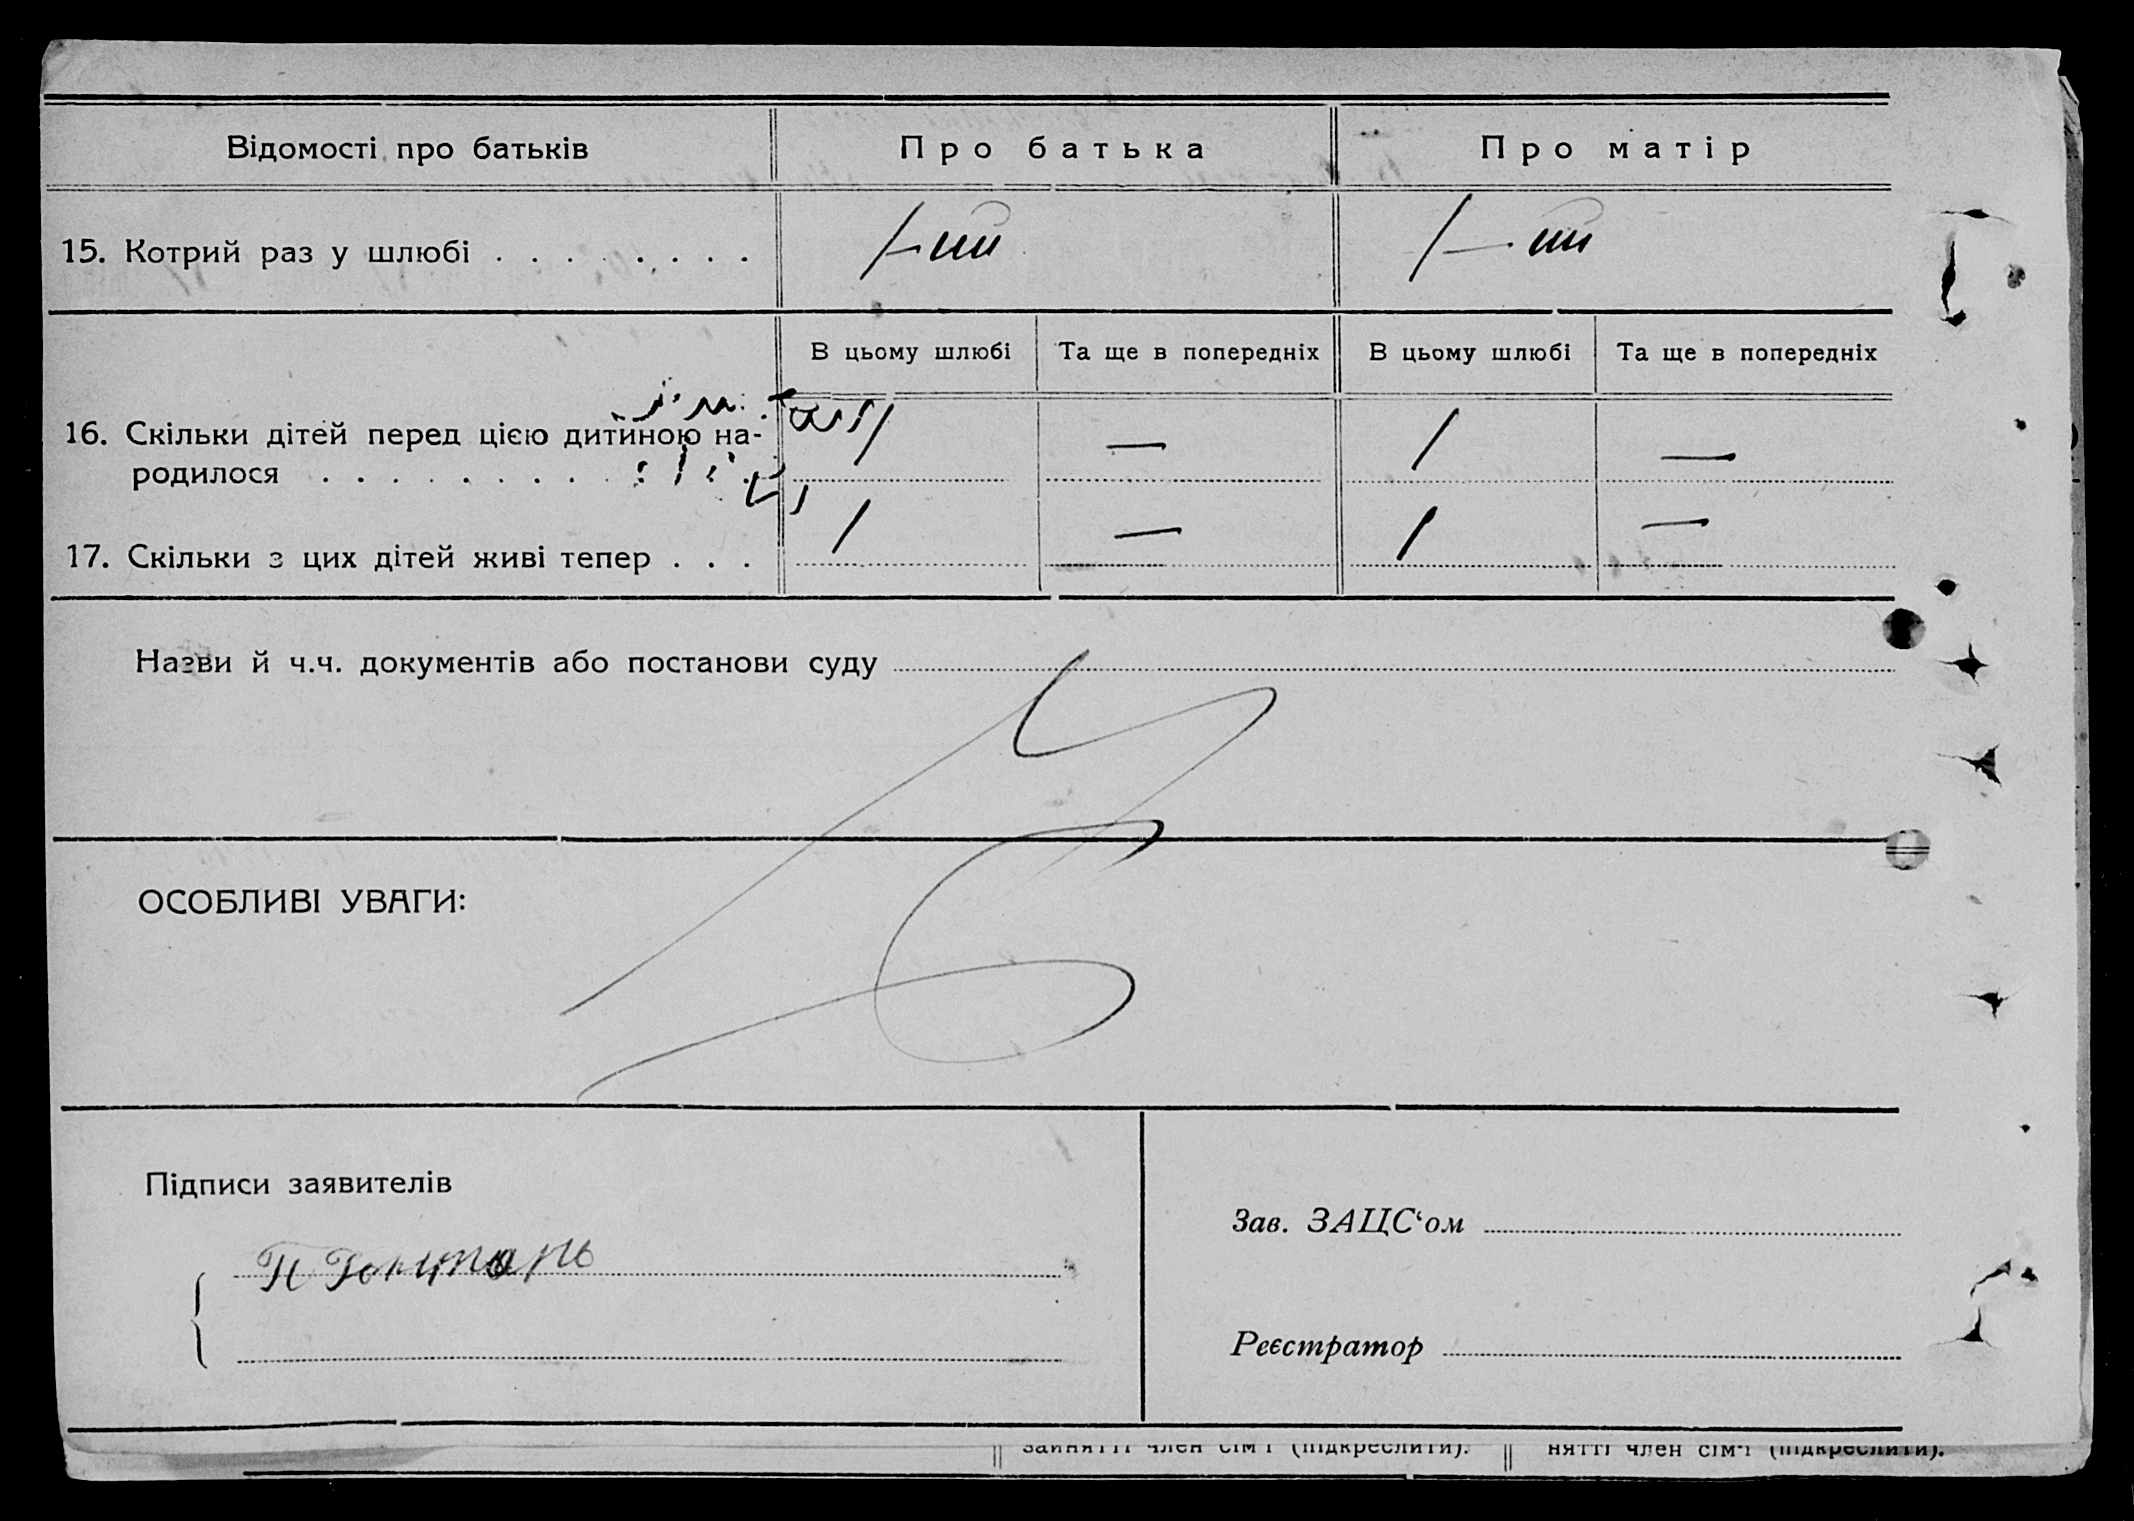 Відомості про батьків Про батька Про матір
15. Котрий раз у шлюбі . . . . . . . . 1-ий 1-ий
В цьому шлюбі Та ще в попередніх В цьому шлюбі Та ще в попередніх
16. Скільки дітей перед цією дитиною на-
родилося . . . . . . . . . . . . 1 — 1 —
17. Скільки з цих дітей живі тепер . . . 1 — 1 —
Назви й ч.ч. документів або постанови суду
ОСОБЛИВІ УВАГИ:
Підписи заявителів
Зав. ЗАЦС‘ом
Реєстратор
зайнятті член сім'ї (підкреслити). нятті член сім'ї (підкреслити).